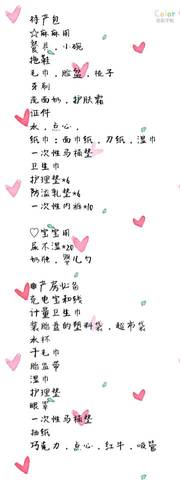 Color
待产包
☆麻麻用
餐具，小碗
拖鞋
毛巾，脸盆，梳子
牙刷
洗面奶，护肤霜
证件
水，点心，
纸巾：面巾纸，刀纸，湿巾
一次性马桶垫
卫生巾
护理垫*6
防溢乳垫*6
一次性内裤*10
♡宝宝用
尿不湿*20
奶瓶，婴儿勺
*产房必备
充电宝和线
计量卫生巾
装胎盘的塑料袋，超市袋
水杯
干毛巾
胎监带
湿巾
护理垫
眼罩
一次性马桶垫
抽纸
巧克力，点心，红牛，吸管